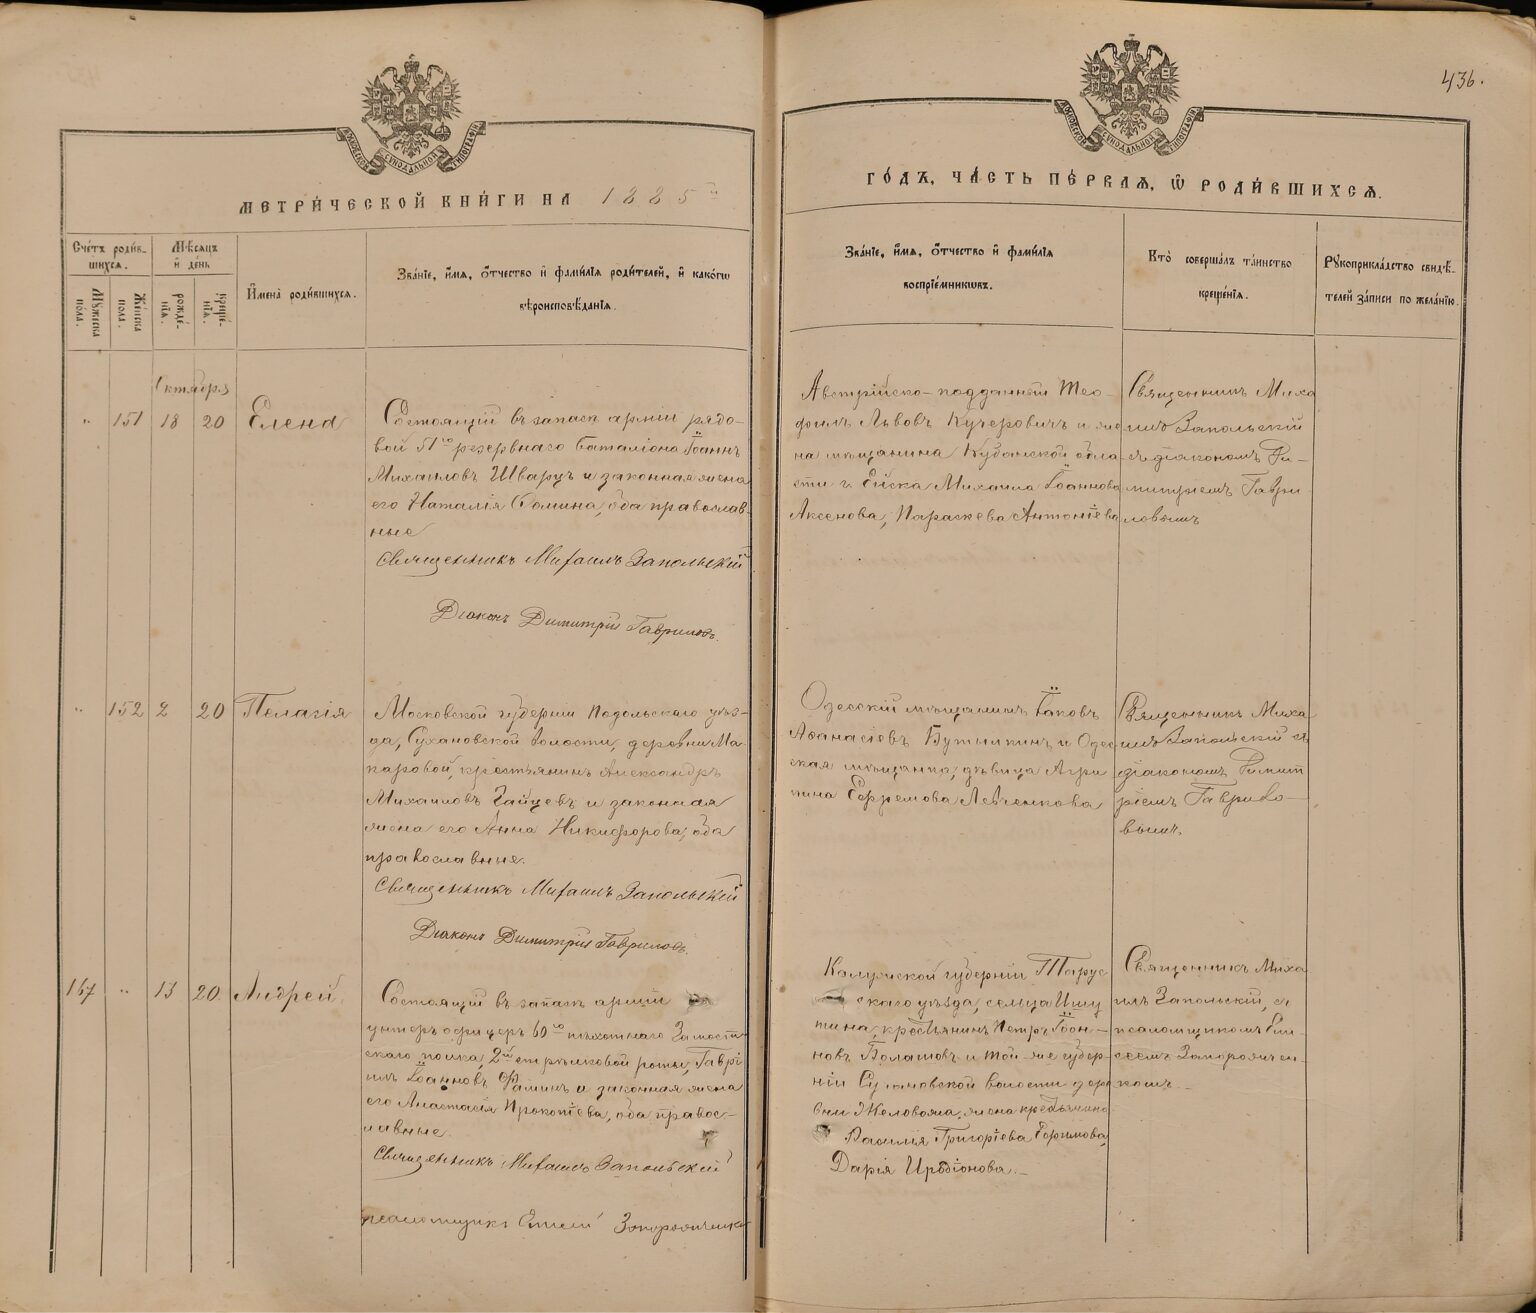 436.
МОСКОВСКОЙ СѴНОДАЛЬНОЙ ТИПОГРАФІИ
МОСКОВСКОЙ СѴНОДАЛЬНОЙ ТИПОГРАФІИ
МЕТРИ́ЧЕСКОЙ КНИ́ГИ НА 1885 й
ГО́ДЪ, ЧА́СТЬ ПЕ́РВАЯ, Ѿ РОДИ́ВШИХСЯ.
Счетъ роди́в-
шихся.
Мѣсяцъ
и де́нь
Мужеска
пола.
Же́нска
пола.
рожде́-
нія.
креще́-
нія.
Имена̀ роди́вшихся.
Зва́ніе, и́мя, о́тчество и фами́лія роди́телей, и како́гѡ
вѣроисповѣ́данія.
Зва́ніе, и́мя, о́тчество и фами́лія
воспріе́мниковъ.
Кто̀ соверша́лъ та́инство
креще́нія.
Рукоприкла́дство свидѣ́-
телей за́писи по жела́нію.
Октября
" 151 18 20 Елена
Состоящій въ запасѣ арміи рядо-
вой 51го резервнаго баталіона Іоаннъ
Михаиловъ Шварцъ и законная жена
его Наталія Фомина, оба православ-
ные
Священникъ Михаилъ Запольскій
Діаконъ Димитрій Гавриловъ.
Австрійско-подданный Тео-
филъ Львовъ Кучеровичъ и же
на мѣщанина Кубанской обла
сти г. Ейска Михаила Іоаннова
Аксенова, Параскева Антоніева
Священникъ Миха
илъ Запольскій
съ діакономъ Ди-
митріемъ Гаври
ловымъ
" 152 2 20 Пелагія
Московской губерніи Подольскаго уѣз-
да, Сухановской волости, деревни Ма-
каровой, крестьянинъ Александръ
Михаиловъ Зайцевъ и законная
жена его Анна Никифорова, оба
православные.
Священникъ Михаилъ Запольскій
Діаконъ Димитрій Гавриловъ.
Одесскій мѣщанинъ Іаковъ
Аѳанасіевъ Бутылкинъ и Одес
ская мѣщанка, дѣвица Агри
пина Ефремова Левченкова
Священникъ Миха
илъ Запольскій съ
діакономъ Димит
ріемъ Гаврило-
вымъ.
167 " 13 20. Андрей.
Состоящій въ запасѣ арміи
унтеръ офицеръ 60го пѣхотнаго Замост
скаго полка, 2й стрѣлковой роты, Гаврі
илъ Іоанновъ и законная жена
его Анастасія Прокопіева, оба правос-
лавные.
Священникъ Михаилъ Запольскій
псаломщикъ Запорожченко
Калужской губерніи Тарус
скаго уѣзда, сельца
крестьянинъ Петръ Іоан-
новъ и той-же губер-
ніи волости дере
вни жена крестьянина
Василія Григоріева Ефимова
Дарія Иродіонова.-
Священникъ Миха
илъ Запольскій, съ
псаломщикомъ Ели-
сеемъ Запорожчен-
комъ.-